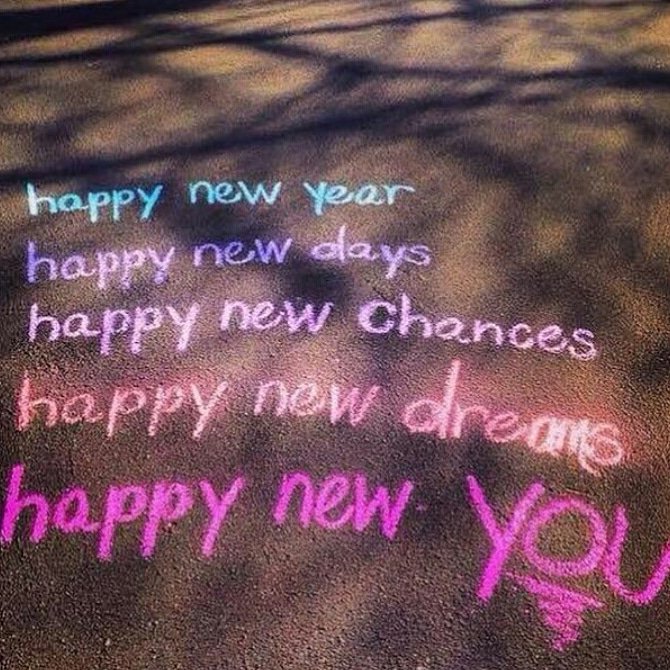 happy new year
happy new days
happy new chances
happy new dreams
happy new YOU